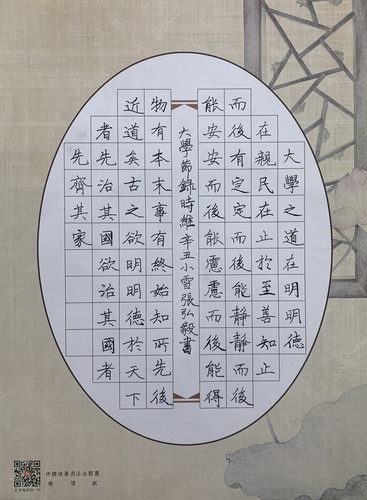 大學之道在明明德
在親民在止於至善知止
而後有定定而後能靜靜而後
能安安而後能慮慮而後能得
大學節錄時維辛丑小雪張弘毅書
物有本末事有終始知所先後
近道矣古之欲明明德於天下
者先治其國欲治其國者
先齊其家